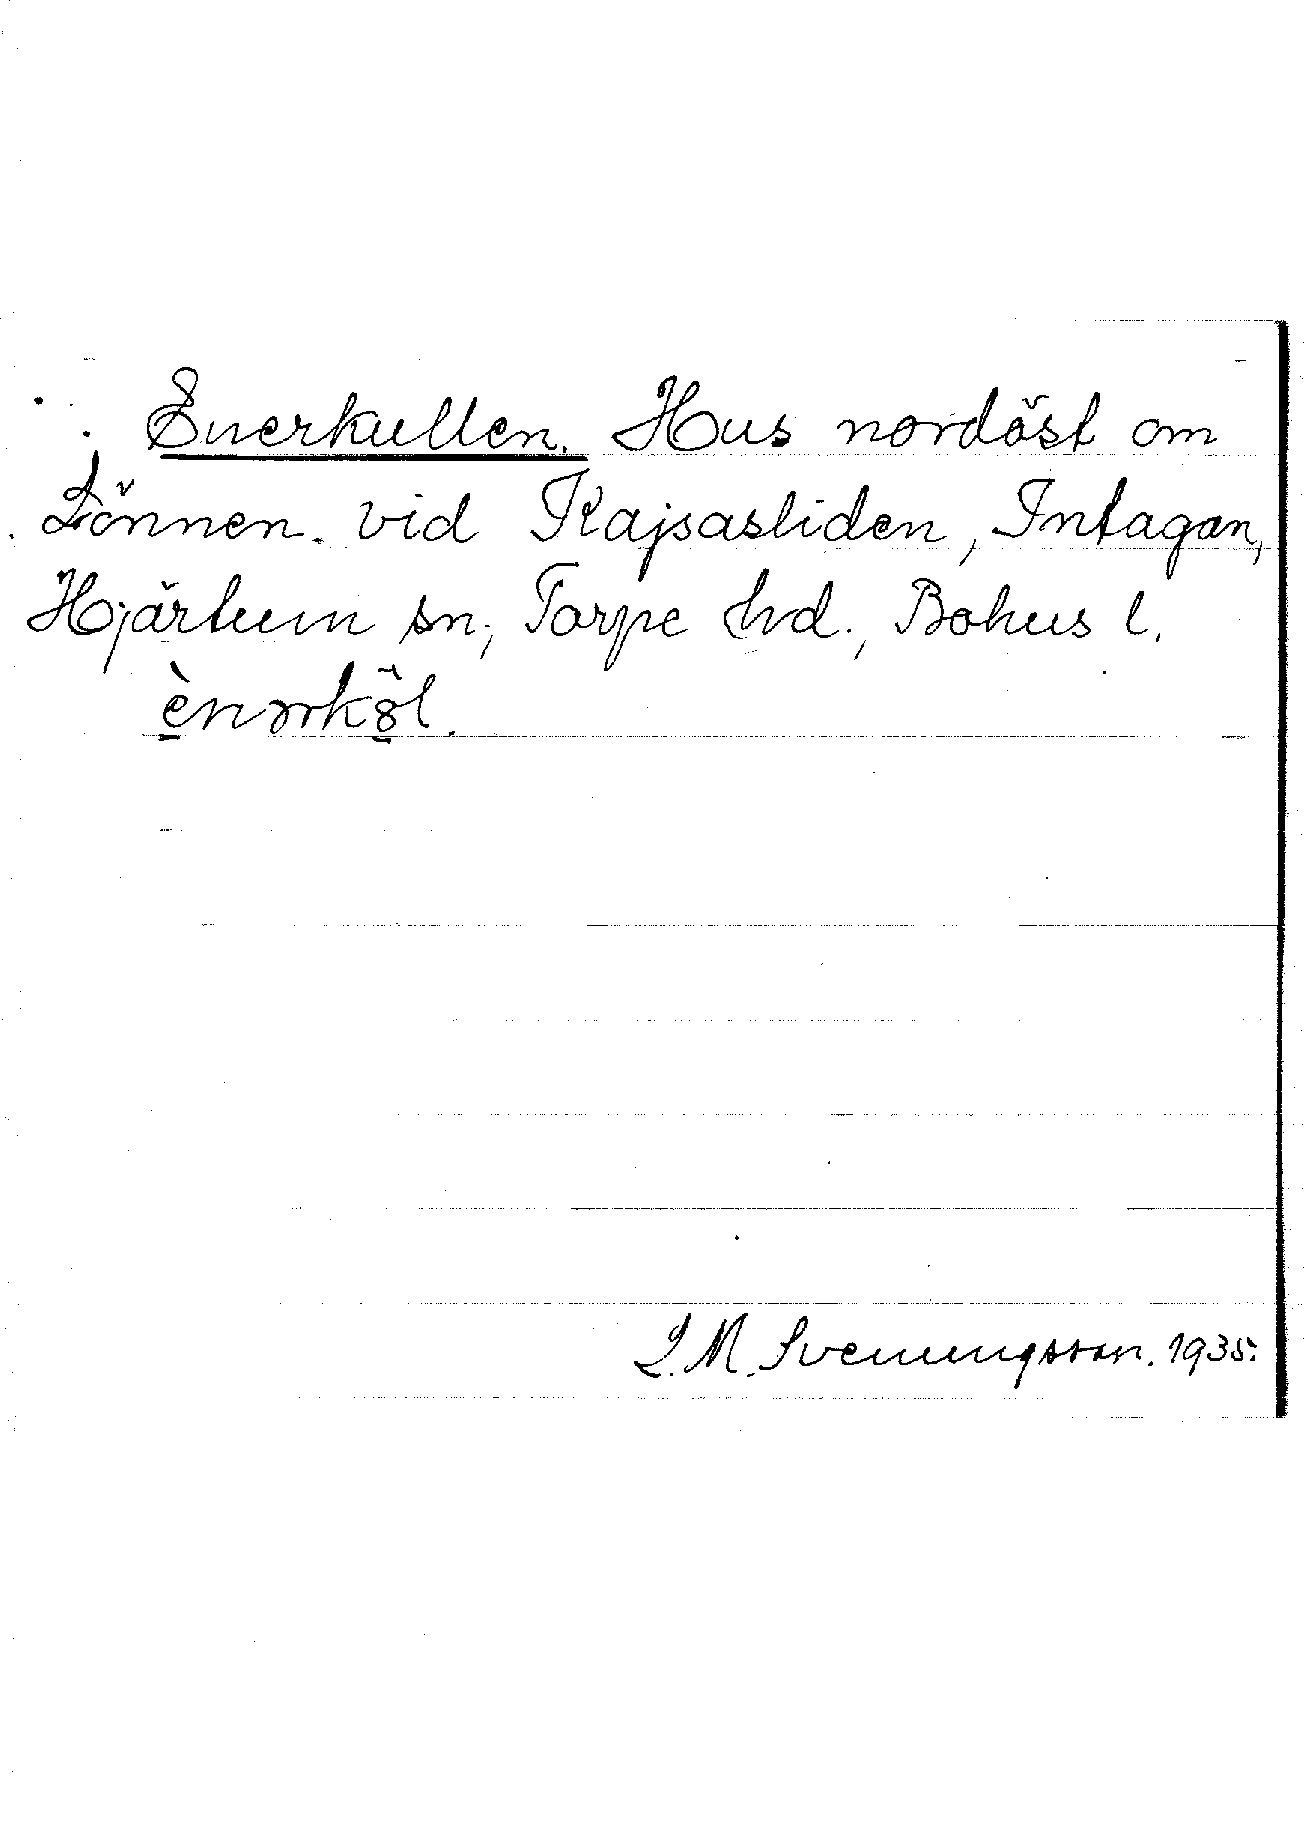 Enerkullen. Hus nordöst om
Lönnen. vid Kajsasliden, Intagan,
Hjärtum sn, Torpe hd., Bohus l.
ènərköl.
L. M. Svenungsson. 1935.